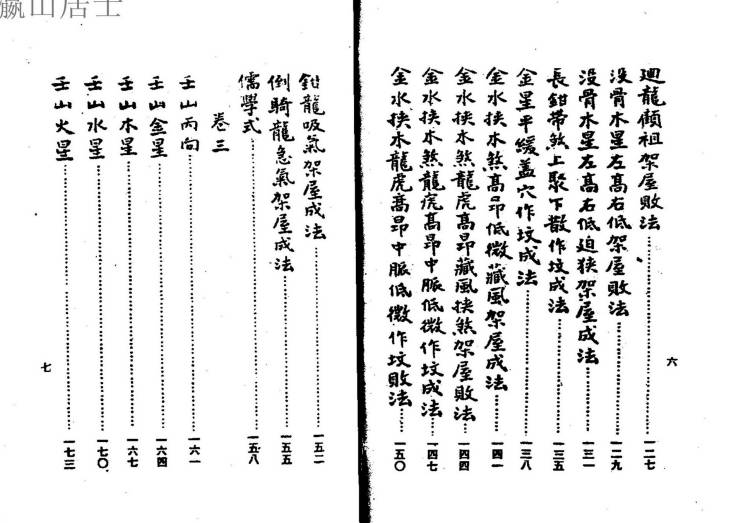 瀛山居士
迴龍顧祖架屋敗法 一二七
没骨木星左高右低架屋敗法 一二九
没骨木星左高右低迫狹架屋成法 一三一
長鉗帶煞上聚下散作坟成法 一三五
金星平緩盖穴作坟成法 一三八
金水挟木煞高昂低微藏風架屋成法 一四一
金水挟木煞龍虎高昂藏風挟煞架屋敗法 一四四
金水挟木煞龍虎高昂中脈低微作坟成法 一四七
金水挟木龍虎高昂中脈低微作坟敗法 一五〇
六
鉗龍吸氣架屋成法 一五二
倒騎龍急氣架屋成法 一五五
儒學式 一五八
卷三
壬山丙向 一六一
壬山金星 一六四
壬山木星 一六七
壬山水星 一七〇
壬山火星 一七三
七